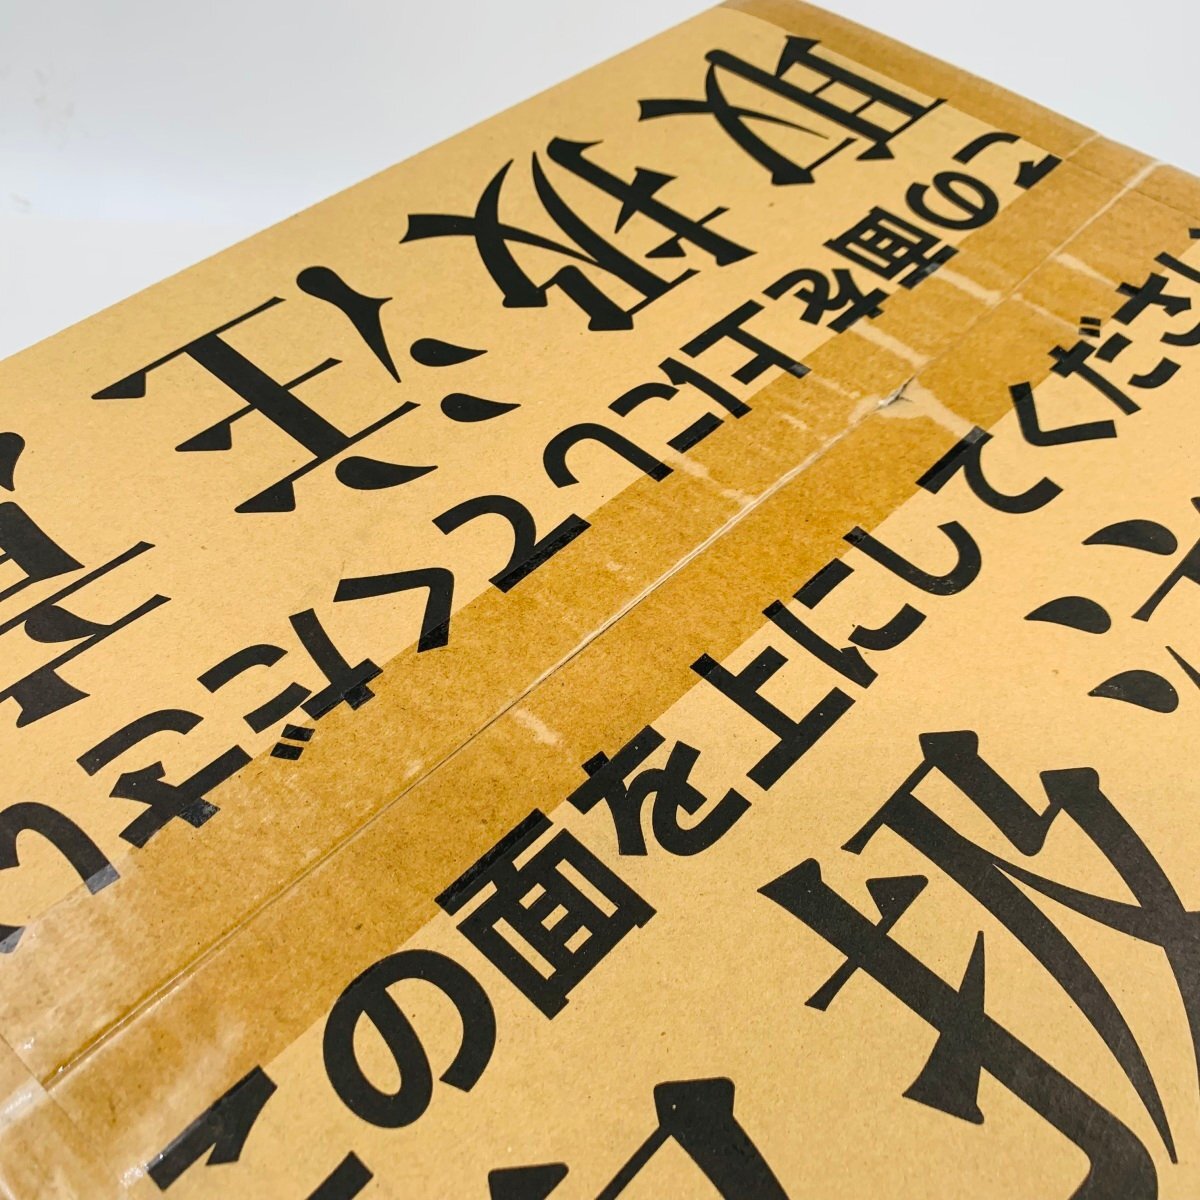 取扱注意
この面を上にしてください
この面を上にしてください
取扱注